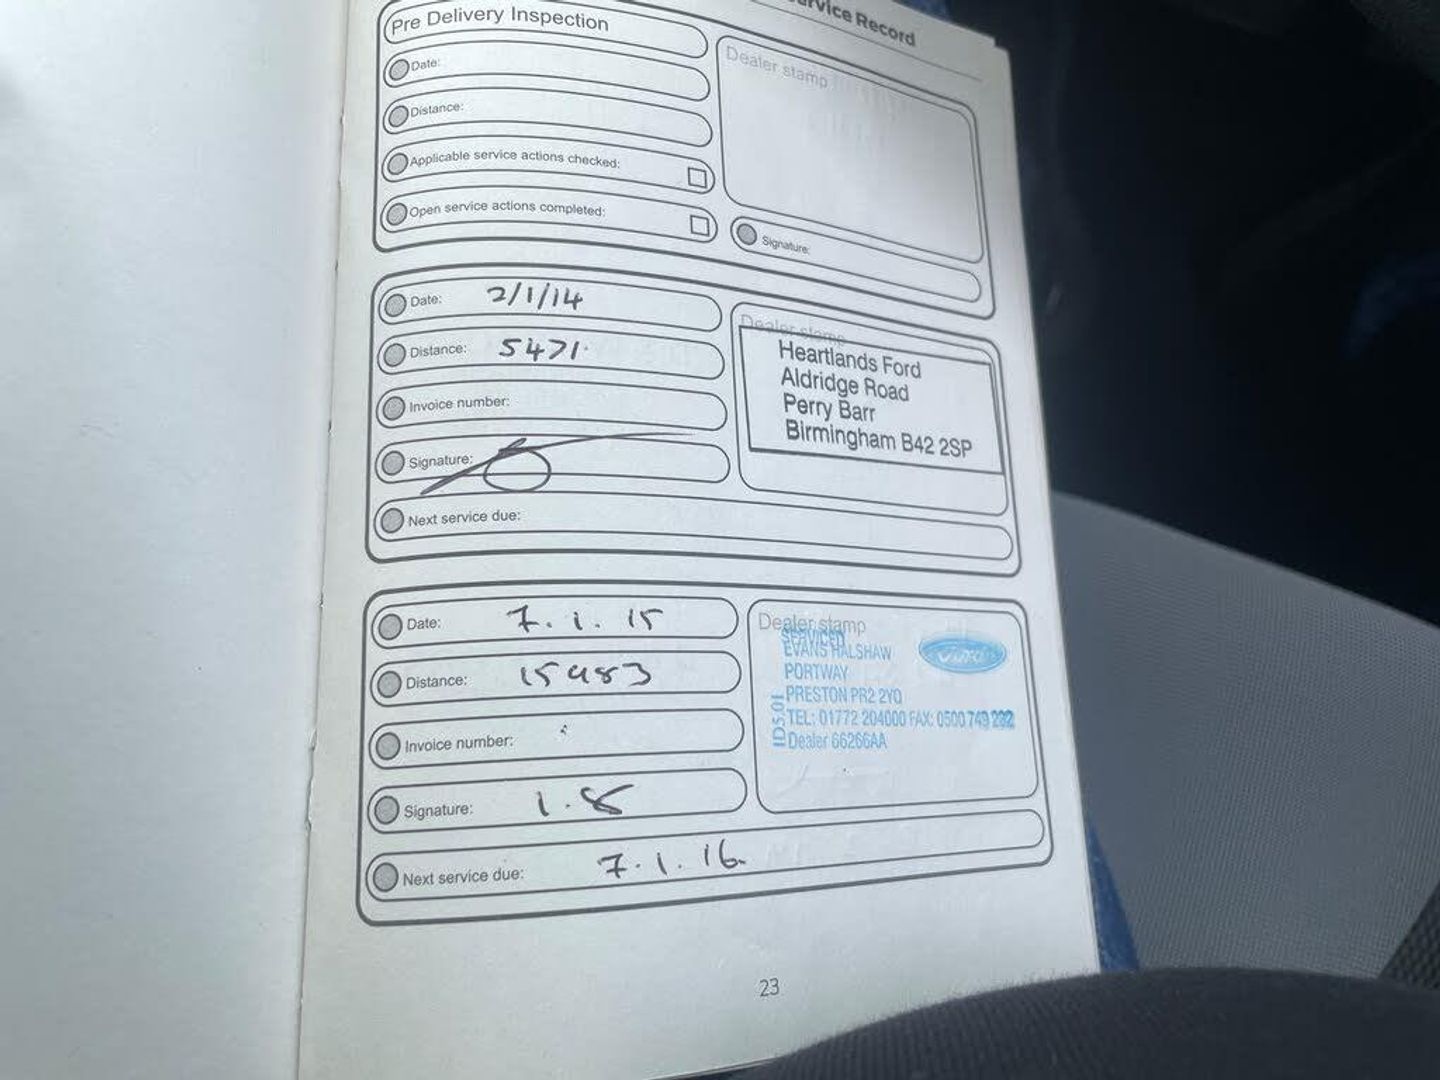 Service Record
Pre Delivery Inspection
Date:
Distance:
Applicable service actions checked:
Open service actions completed:
Dealer stamp
Signature:
Date: 2/1/14
Distance: 5471
Invoice number:
Signature:
Next service due:
Dealer stamp
Heartlands Ford
Aldridge Road
Perry Barr
Birmingham B42 2SP
Date: 7.1.15
Distance: 15983
Invoice number:
Signature:
Next service due: 7.1.16
Dealer stamp
SERVICED
EVANS HALSHAW
PORTWAY
PRESTON PR2 2YQ
TEL: 01772 204000 FAX: 0500 749 292
Dealer 66266AA
Ford
23